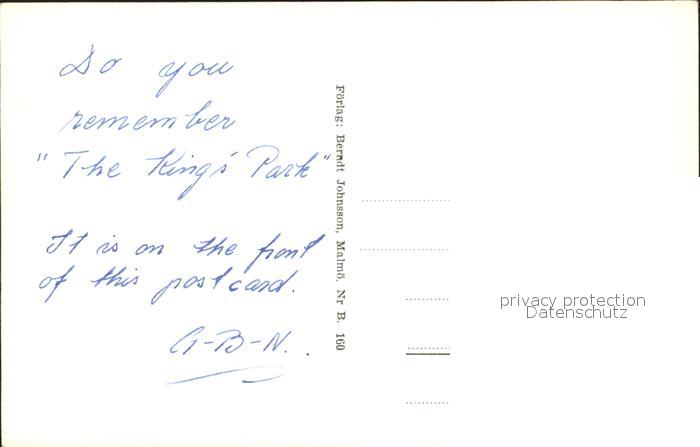 Do you
remember
"The King's Park"
It is on the front
of this postcard.
G-B-N.
Förlag: Berndt Johnsson, Malmö, Nr B. 160
privacy protection
Datenschutz